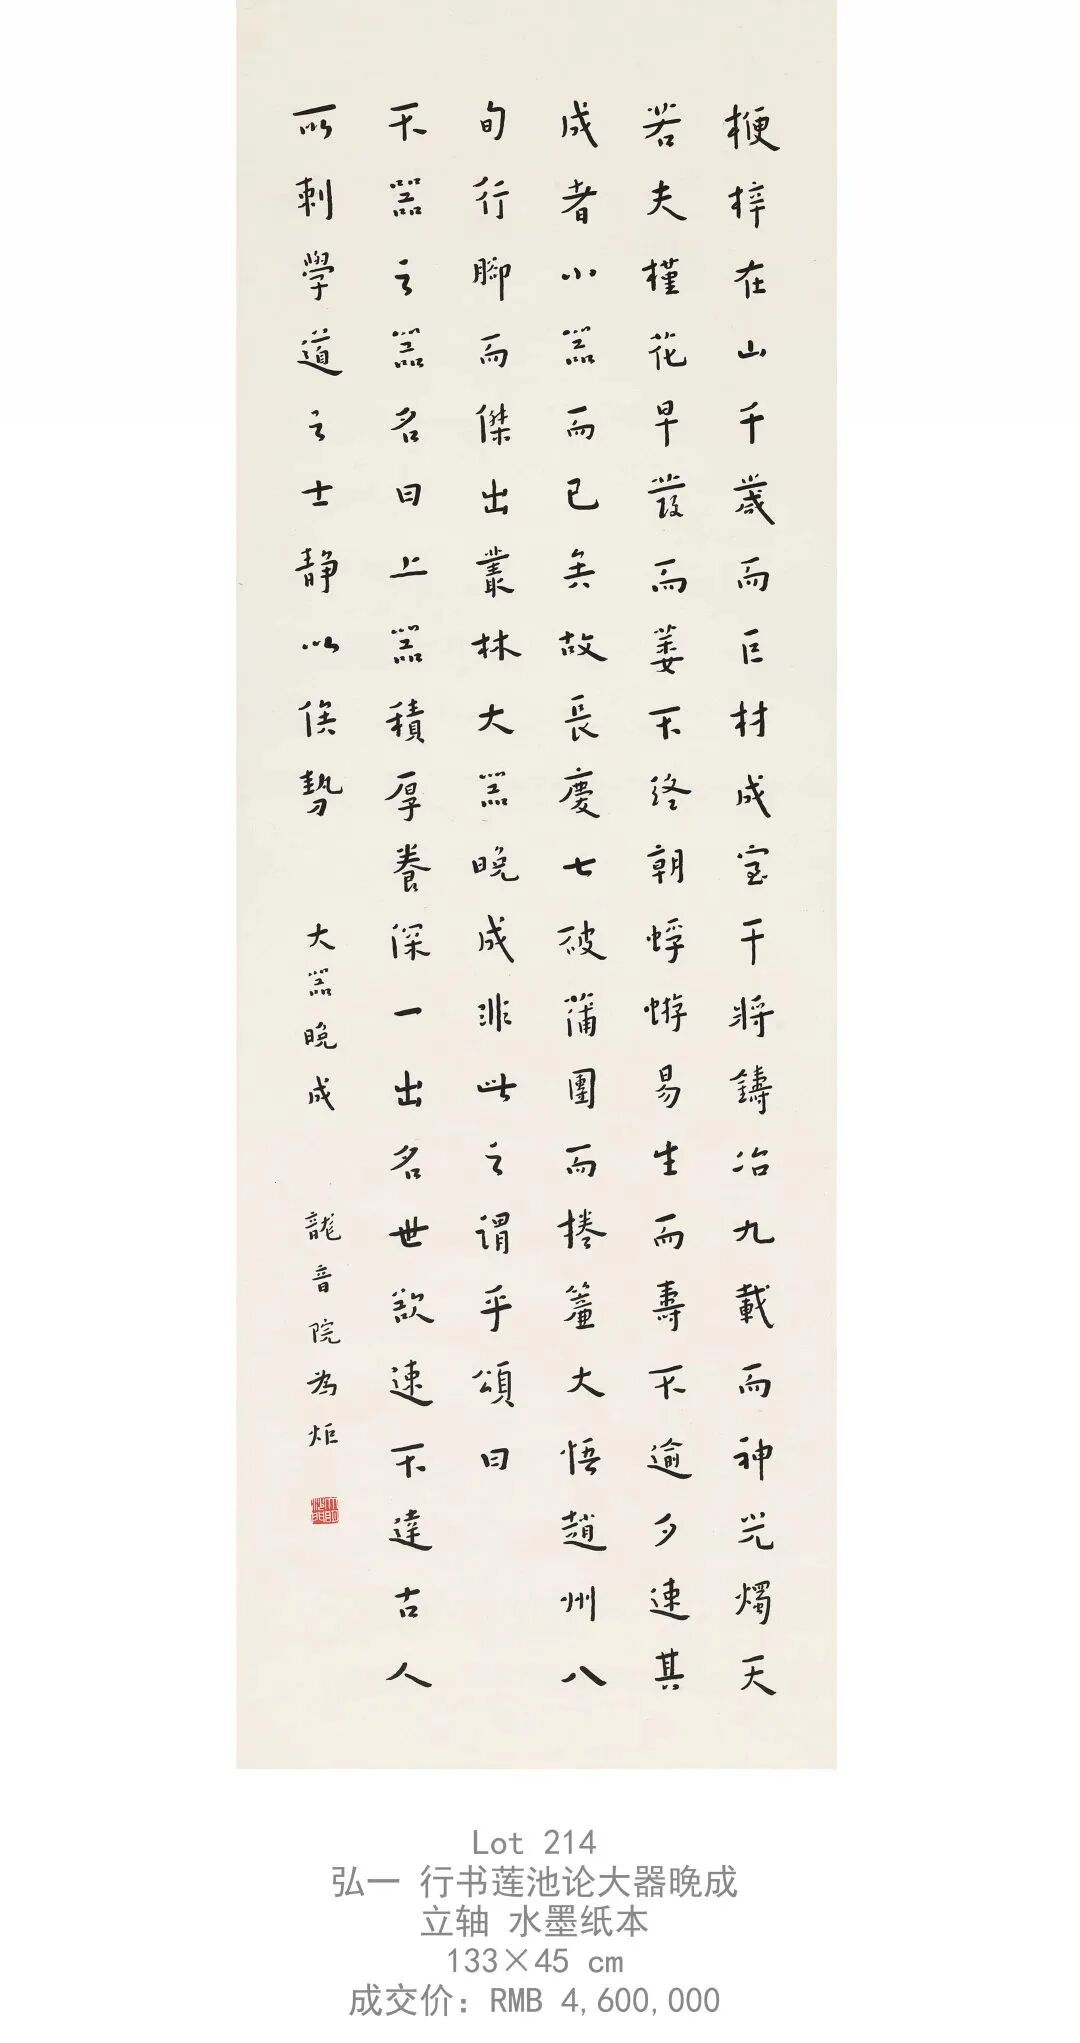 梗梓在山千歲而巨材成室干將鑄冶九載而神光燭天
若夫槿花早發而萎不終朝蜉蝣易生而壽不逾夕速其
成者小器而已矣故長慶七破蒲團而捲簾大悟趙州八
旬行腳而傑出叢林大器晚成非此之謂乎頌曰
不器之器名曰上器積厚養深一出名世欲速不達古人
所刺學道之士靜以俟勢
大器晚成
龍音院為炬
Lot 214
弘一 行书莲池论大器晚成
立轴 水墨纸本
133×45 cm
成交价：RMB 4,600,000